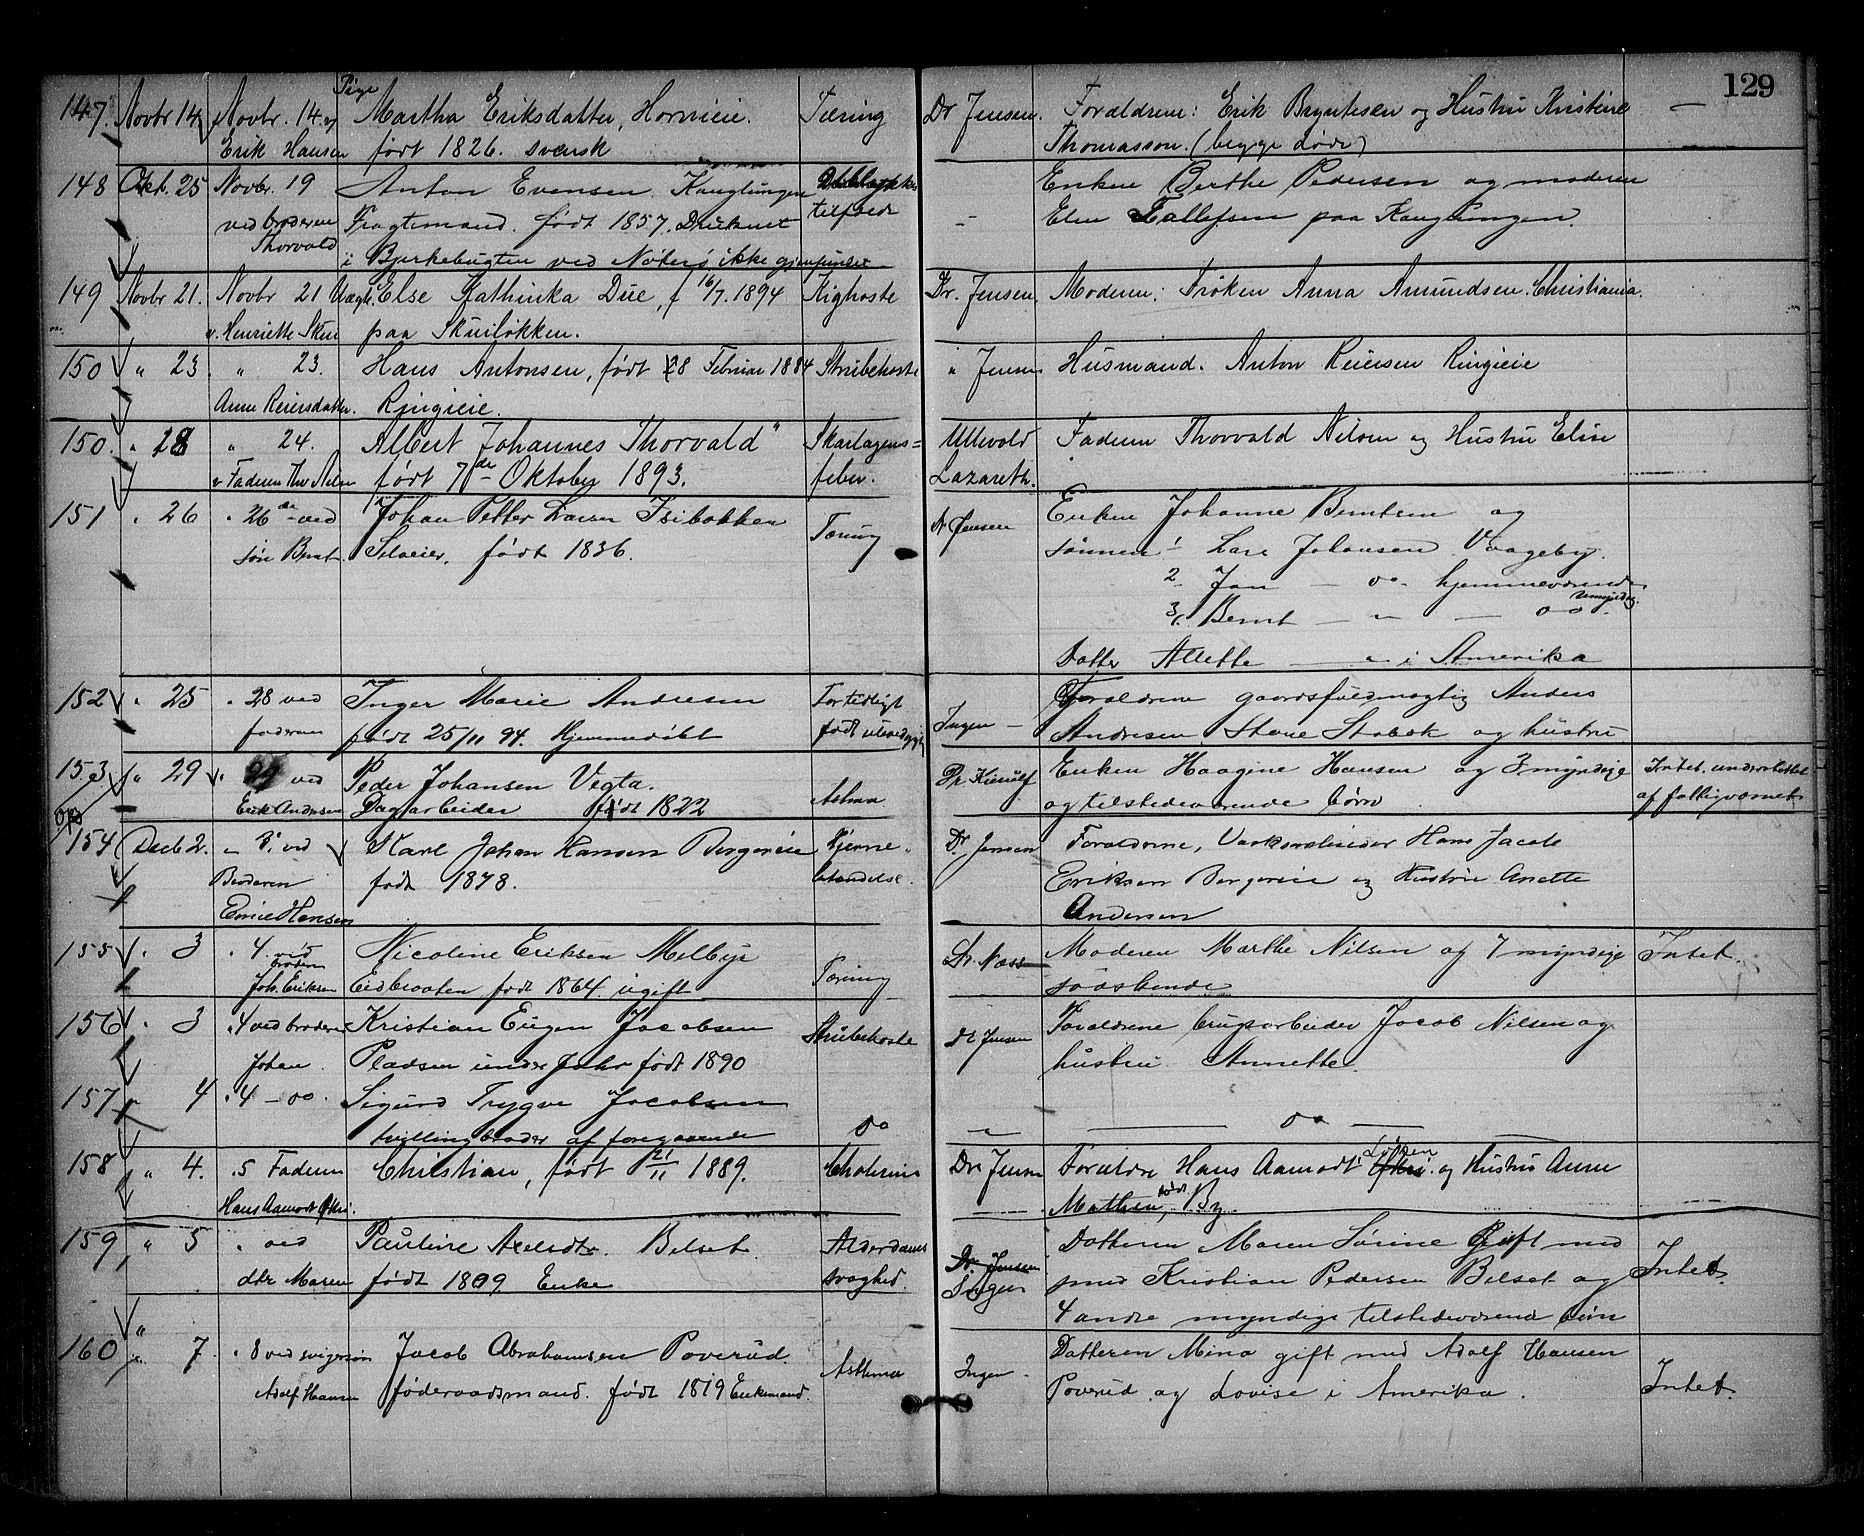 129
147. Novbr 14 Novbr. 14 v/ Pige Martha Eriksdatter, Hornieie. Tæring Dr Jensen. Forældrene: Erik Bryntesen og Hustru Kristine —
Erik Hansen født 1826. svensk Thomasson. (begge døde)
148 Okt. 25 Novbr. 19 Anton Evensen Kauglungen Enken Berthe Pedersen og moderen
ved broderen Fragtemand. født 1857. Druknet tilfælde - Elen Tallefsen paa Kauglungen.
Thorvald i Bjerkebugten ved Nøterø ikke gjenfundet
149 Novbr 21. Novbr 21 Uægte. Else Kathinka Due, f 16/7. 1894 Kighoste Dr. Jensen. Moderen: Frøken Anna Amundsen. Christiania.
v. Henriette Skui paa Skuiløkken.
150 " 23 " 23. Hans Antonsen, født 28 Februar 1884 Strubehoste " Jensen Husmand. Anton Reiersen Ringieie
Anne Reiersdatter. Ringieie.
150. " 28 " 24. Albert Johannes Thorvald" Skarlagens= Ullevold Faderen Thorvald Nilsen og Hustru Elise
v Faderen Thv Nilsen født 7de Oktober 1893. feber. Lazareth.
151 " 26 " 26de ved Johan Petter Larsen Isibakken Tæring Dr Jensen Enken Johanne Berntsen og
søn Bernt Selveier, født 1836. sønnen 1 Lars Johansen Vaageby.
2 Jan — do - hjemmeværende
3/. Bernt — " — do umyndig.
Datter Allette — " i Amerika
152 " 25 " 28 ved Inger Marie Andresen Fortidligt Ingen — Forældrene gaardsfuldmægtig Anders
faderen født 25/11 94. Hjemmedøbt født Andresen Stene Stabæk og hustru
153 " 29 " 29 ved Peder Johansen Vegta. Astma Dr. Kierulf Enken Haagine Hansen og 3 myndige Intet. understøttet
Erik Andersen Dagarbeider født 1822 og tilstedeværende børn af fattigvæsnet
154 Decb 2. " 3. ved Karl Johan Hansen Borgereie Hjerne- Dr. Jensen Forældrene, Værksarbeider Hans Jacob
Broderen født 1878. betændelse. Eriksen Borgereie og Hustru Anette
Emil Hansen Andersen
155 " 3 " 4 ved Nicoline Eriksen Melbye Tæring Dr. Næss Moderen Marthe Nilsen og 7 myndige Intet.
broderen Joh. Eriksen Eidbraaten født 1864. ugift søskende
156 " 3 " 4 ved broderen Kristian Eugen Jacobsen Strubehoste Dr Jensen Forældrene brugsarbeider Jacob Nilsen og
Johan. Pladsen under Jahr født 1890 hustru Annette.
157 " 4 " 4 - do. Sigurd Trygve Jacobsen do " — do —
tvillingbroder af foregaaende
158 " 4. " 5 Faderen Christian, født 21/11 1889. Cholerine Dr Jensen Forældre Hans Aamodt Løkken Økri. og Hustru Anne
Hans Aamodt Økri. Mathea, født By.
159 " 5 " ved Pauline Axelsdtr. Belset Alderdoms Dr. Jensen Datteren Maren Sørine Gift med
dtr Maren født 1809 Enke svaghed. Ingen med Kristian Pedersen Belset og Intet.
4 andre myndige tilstedeværende børn
160 " 7. " 8 ved svigersøn Jacob Abrahamsen Poverud. Asthma Ingen. Datteren Mina gift med Adolf Hansen
Adolf Hansen føderaadsmand. født 1819 Enkemand. Poverud. og Lovise i Amerika. Intet.